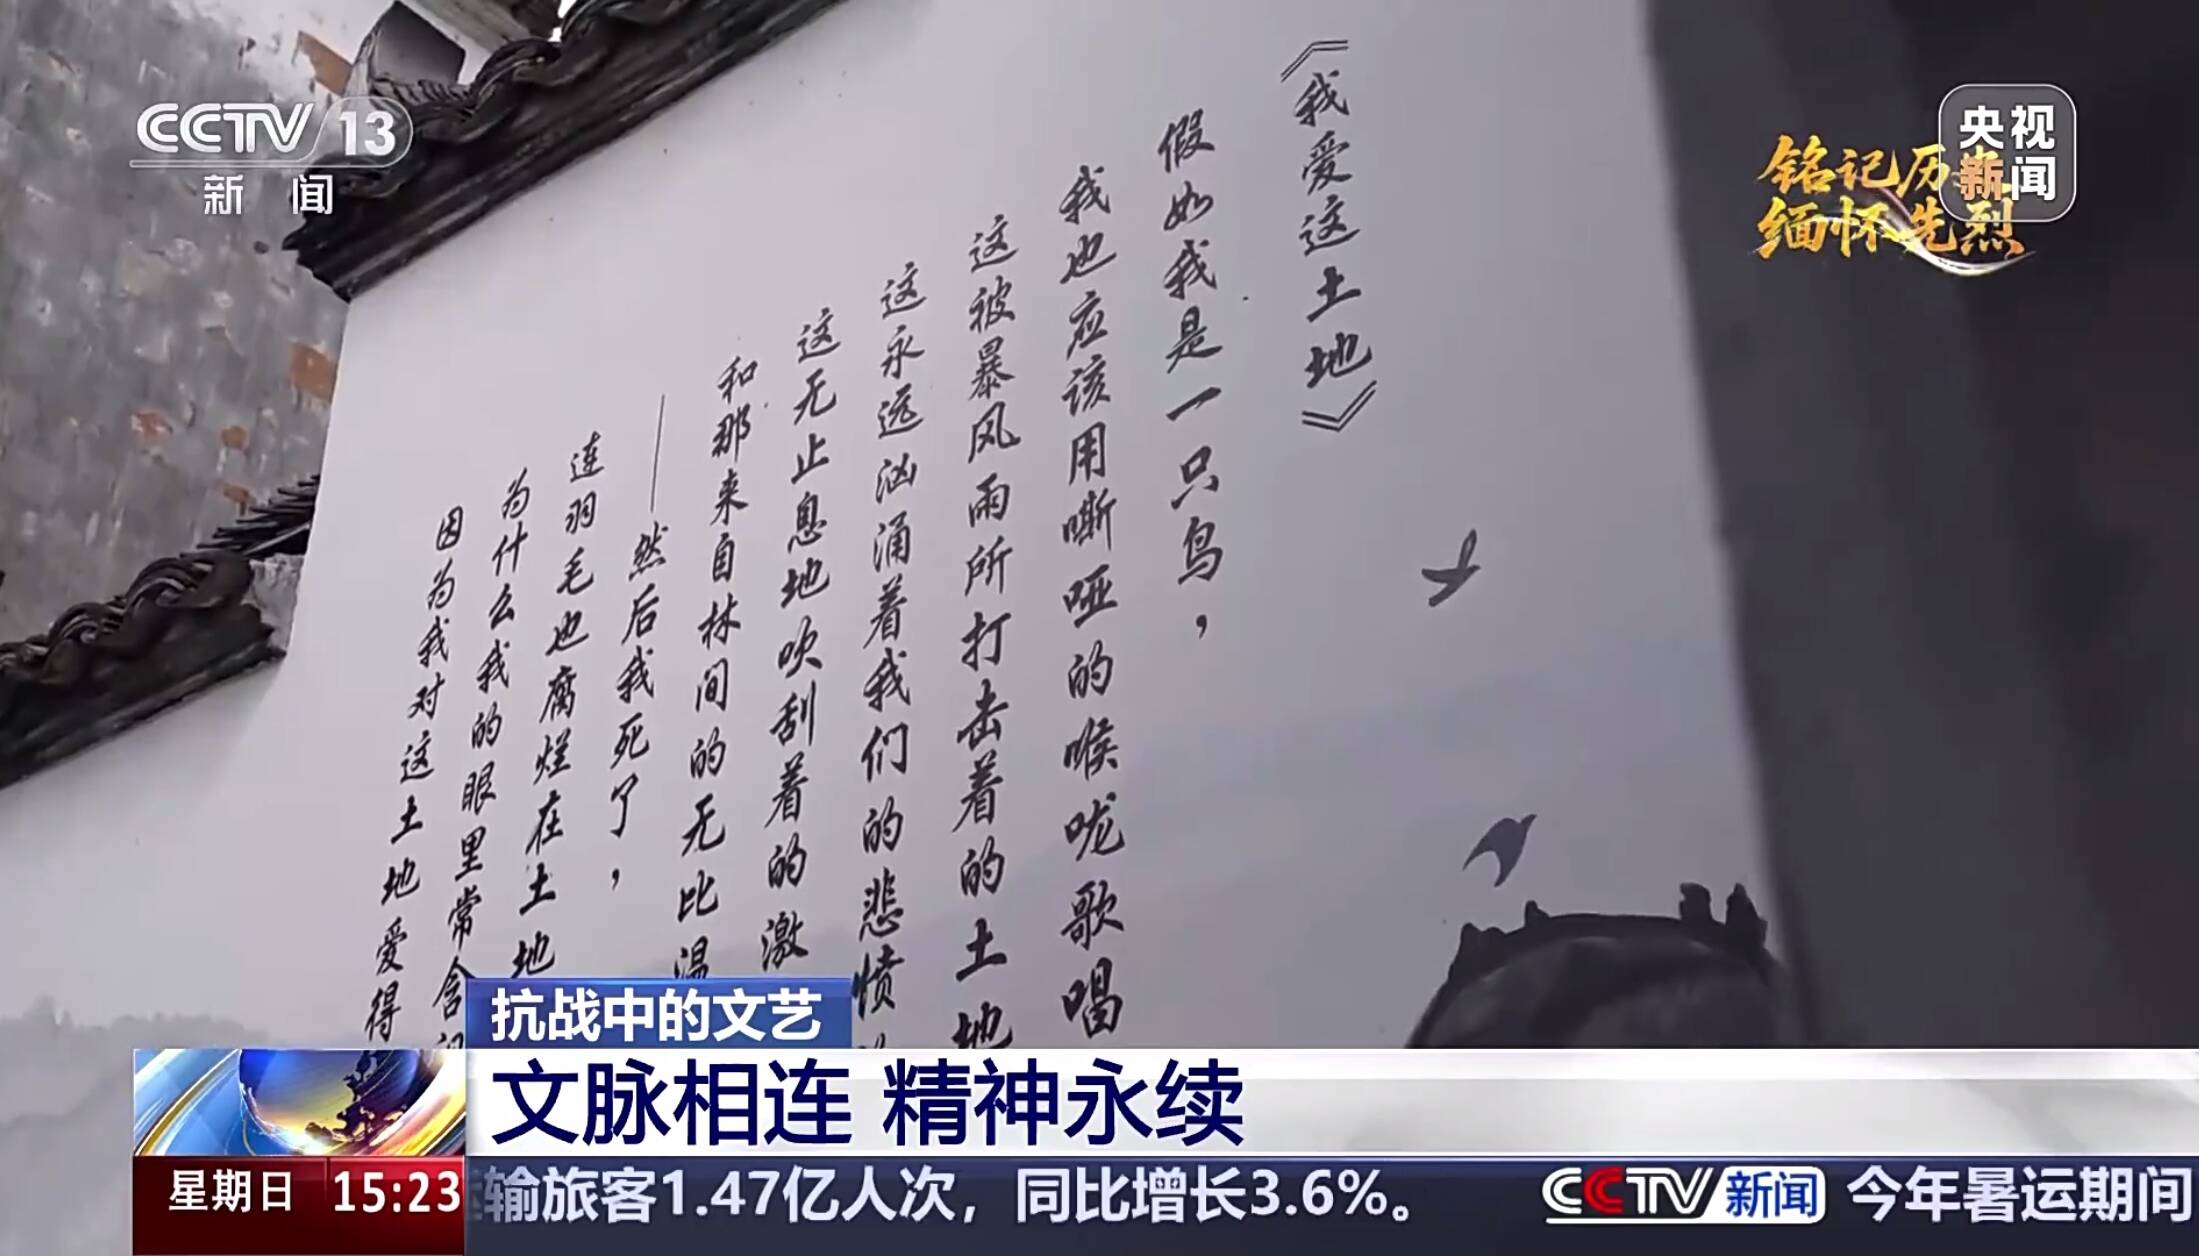 CCTV 13
新闻
央视
新闻
铭记历
缅怀先烈
《我爱这土地》
假如我是一只鸟，
我也应该用嘶哑的喉咙歌唱
这被暴风雨所打击着的土地
这永远汹涌着我们的悲愤
这无止息地吹刮着的激
和那来自林间的无比温
——然后我死了，
连羽毛也腐烂在土地
为什么我的眼里常含
因为我对这土地爱得
抗战中的文艺
文脉相连 精神永续
星期日 15:23
输旅客1.47亿人次，同比增长3.6%。 CCTV新闻 今年暑运期间